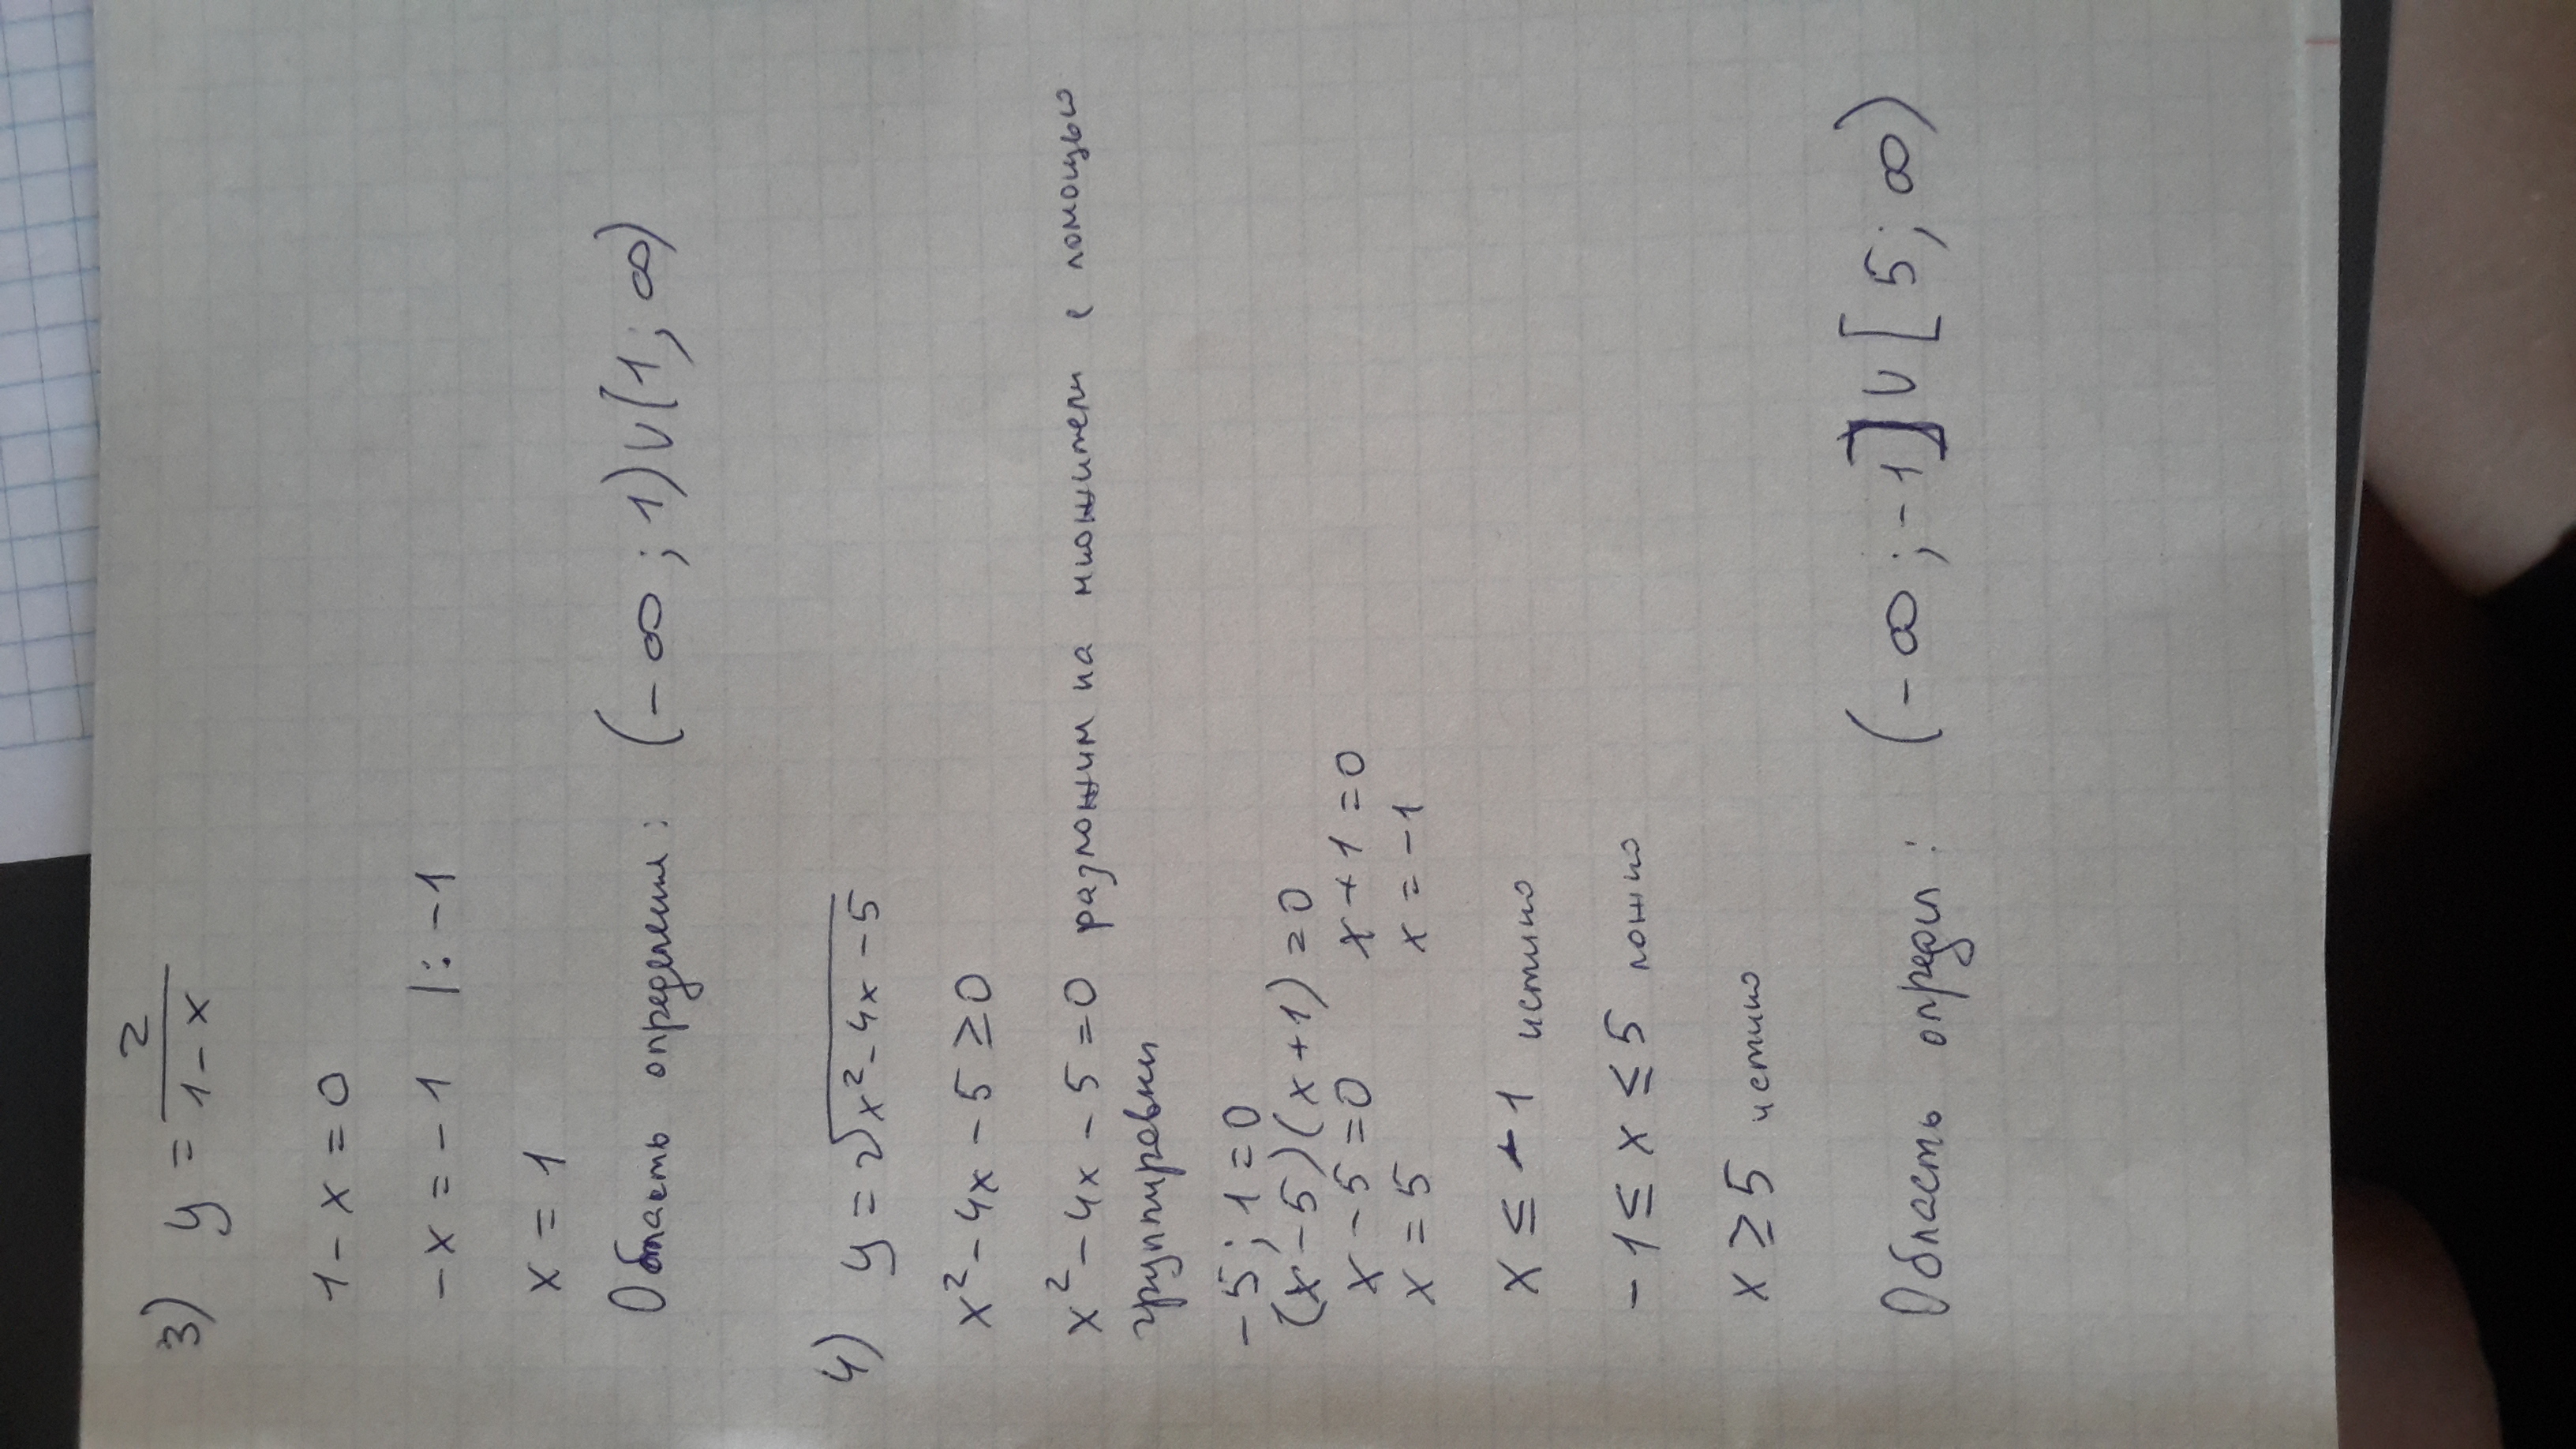 3) y = 2/(1-x)
1-x=0
-x=-1 |:-1
x=1
Область определения: (-∞; 1)∪(1; ∞)
4) y = 2√(x²-4x-5)
x²-4x-5≥0
x²-4x-5=0 разложим на множители с помощью
группировки
-5; 1=0
(x-5)(x+1)=0
x-5=0 x+1=0
x=5 x=-1
x≤-1 истино
-1≤x≤5 ложно
x≥5 истино
Область опредил: (-∞; -1]∪[5; ∞)